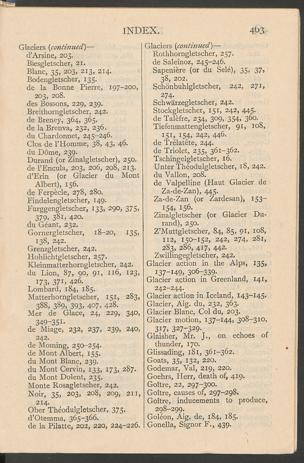 INDEX. 463
Glaciers (continued)—
d'Arsine, 203.
Biesgletscher, 21.
Blanc, 35, 203, 213, 214.
Bodengletscher, 135.
de la Bonne Pierre, 197-200,
203, 208.
des Bossons, 229, 239.
Breithorngletscher, 242.
de Breney, 364, 365.
de la Brenva, 232, 236.
du Chardonnet, 245-246.
Clos de l'Homme, 38, 43, 46.
du Dôme, 239.
Durand (or Zinalgletscher), 250.
de l'Encula, 203, 206, 208, 213.
d'Erin (or Glacier du Mont
Albert), 156.
de Ferpècle, 278, 280.
Findelengletscher, 149.
Furggengletscher, 133, 290, 375,
379, 381, 420.
du Géant, 232.
Gornergletscher, 18-20, 135,
138, 242.
Grenzgletscher, 242.
Hohlichtgletscher, 257.
Kleinmatterhorngletscher, 242.
du Lion, 87, 90, 91, 116, 123,
173, 371, 426.
Lombard, 184, 185.
Matterhorngletscher, 151, 283,
388, 389, 393, 407, 428.
Mer de Glace, 24, 229, 340,
349-351.
de Miage, 232, 237, 239, 240,
242.
de Moming, 250-254.
du Mont Albert, 155.
du Mont Blanc, 239.
du Mont Cervin, 133, 173, 287.
du Mont Dolent, 235.
Monte Rosagletscher, 242.
Noir, 35, 203, 208, 209, 211,
214.
Ober Théodulgletscher, 375.
d'Otemma, 365-366.
de la Pilatte, 202, 220, 224-226.
Glaciers (continued)—
Rothhorngletscher, 257.
de Saleinoz, 245-246.
Sapenière (or du Selé), 35, 37,
38, 202.
Schönbuhlgletscher, 242, 271,
274.
Schwärzegletscher, 242.
Stockgletscher, 151, 242, 445.
de Talèfre, 234, 309, 354, 360.
Tiefenmattengletscher, 91, 108,
151, 154, 242, 446.
de Trélatête, 244.
de Triolet, 235, 361-362.
Tschingelgletscher, 16.
Unter Théodulgletscher, 18, 242.
du Vallon, 208.
de Valpelline (Haut Glacier de
Za-de-Zan), 445.
Za-de-Zan (or Zardesan), 153-
154, 156.
Zinalgletscher (or Glacier Du-
rand), 250.
Z'Muttgletscher, 84, 85, 91, 108,
112, 150-152, 242, 274, 281,
283, 286, 417, 442.
Zwillingsgletscher, 242.
Glacier action in the Alps, 135,
137-149, 306-339.
Glacier action in Greenland, 141,
242-244.
Glacier action in Iceland, 143-145.
Glacier, Aig. du, 232, 363.
Glacier Blanc, Col du, 203.
Glacier motion, 137-144, 308-310,
317, 327-329.
Glaisher, Mr. J., on echoes of
thunder, 170.
Glissading, 181, 361-362.
Goats, 35, 132, 220.
Godemar, Val, 219, 220.
Goehrs, Herr, death of, 419.
Goître, 22, 297-300.
Goître, causes of, 297-298.
Goître, inducements to produce,
298-299.
Goléon, Aig. de, 184, 185.
Gonella, Signor F., 439.